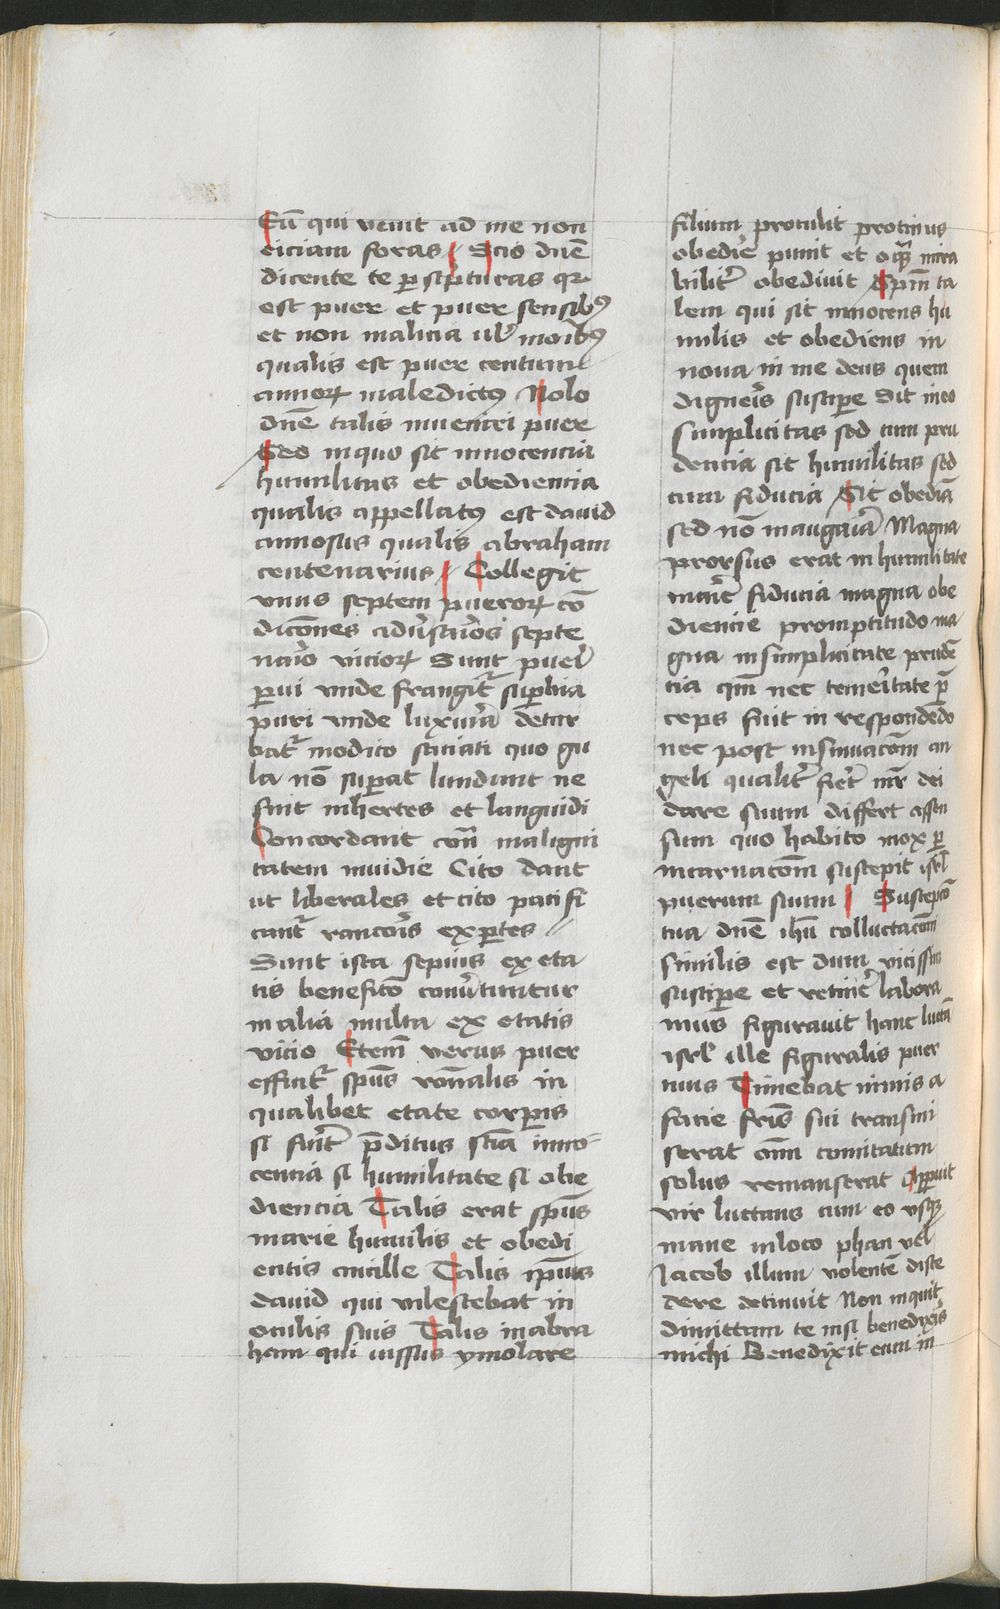 Eū qui venit ad me non
eiciam foras Scio dn̄e
dicente te per scripturas qr
est puer et puer sensibꝰ
et non malicia ul' moribꝰ
qualis est puer centum
annoꝝ maledictꝰ Nolo
dn̄e talis inuentei puer
Sed in quo sit innocencia
humilitas et obediencia
qualis appellatꝰ est dauid
annosus qualis abraham
centenarius Collegit
vnus septem pueroꝝ cō
dicōnes aduersarios septe
nario vicioꝝ Sunt pueri
parui vnde frangit superbia
puri vnde luxuria detur
batr modico saciati quo gu
la nō superat ludunt ne
sint inhertes et languidi
Concordant cont̄ maligni
tatem inuidie Cito dant
ut liberales et cito pacifi
cantr rancoris expertes
Sunt ista sepius ex eta
tis beneficio conuertuntur
in alia multa ex etatis
vicio Etem̄ verus puer
efficitr sp̄us ron̄alis in
qualibet etate corporis
si fuerit p̄ditus sc̄a inno
centia si humilitate si obe
diencia Talis erat sp̄us
marie humilis et obedi
entis ancille Talis sp̄us
dauid qui vilescebat in
oculis suis Talis in abra
ham qui iussus ymolare
filium protulit protinus
obedire punit et oq̄ꝫ mira
biliter obediuit Sp̄m ta
lem qui sit innocens hu
milis et obediens in
noua in me deus quem
digneris suscipere Sit in eo
simplicitas sed cum pru
dencia sit humilitas sed
cum fiducia Sit obediā
sed nō Magna
prorsus erat in humilitate
matris fiducia magna obe
diencie promptitudo ma
gna in simplicitate prudē
cia qm̄ nec temeritate p̄
ceps fuit in respondēdo
nec post insinuacōm an
geli qualiter fieret mr̄ dei
dare suum differt assen
sum quo habito mox per
incarnacōm suscepit isrl'
puerum suum Suscepcō
tua dn̄e ihū colluctacōni
similis est dum vicissim
suscipere et retinere labora
mus figurauit hanc luctā
isrl' ille figuralis puer
tuus Timebat nimis a
facie fr̄is sui transmi
serat om̄m comitatum
solus remanserat Apparuit
vir luctans cum eo vsqꝫ
mane in loco phanuel
Jacob illum volentē disce
dere detinuit Non inquit
dimittam te nisi benedixeris
michi Benedixit eum in